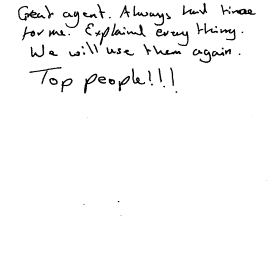 Great agent. Always had time
for me. Explained every thing.
We will use them again.
Top people!!!